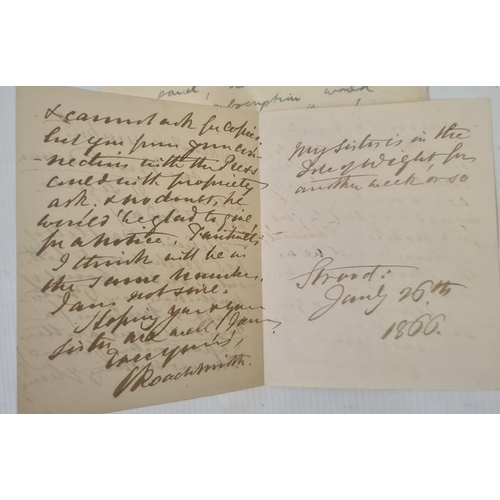 would
subscription
& cannot ask for copies
but you from your con-
nection with the Press
could with propriety
ask. & no doubt, he
would be glad to give
for a notice.
I think will be in
the same number.
I am not sure.
Hoping you & your
sister are well
Ever yours,
C Roach Smith.
My sister is in the
Isle of Wight for
another week or so
Strood:
July 26th
1866.